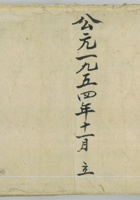 公元一九五四年十一月立